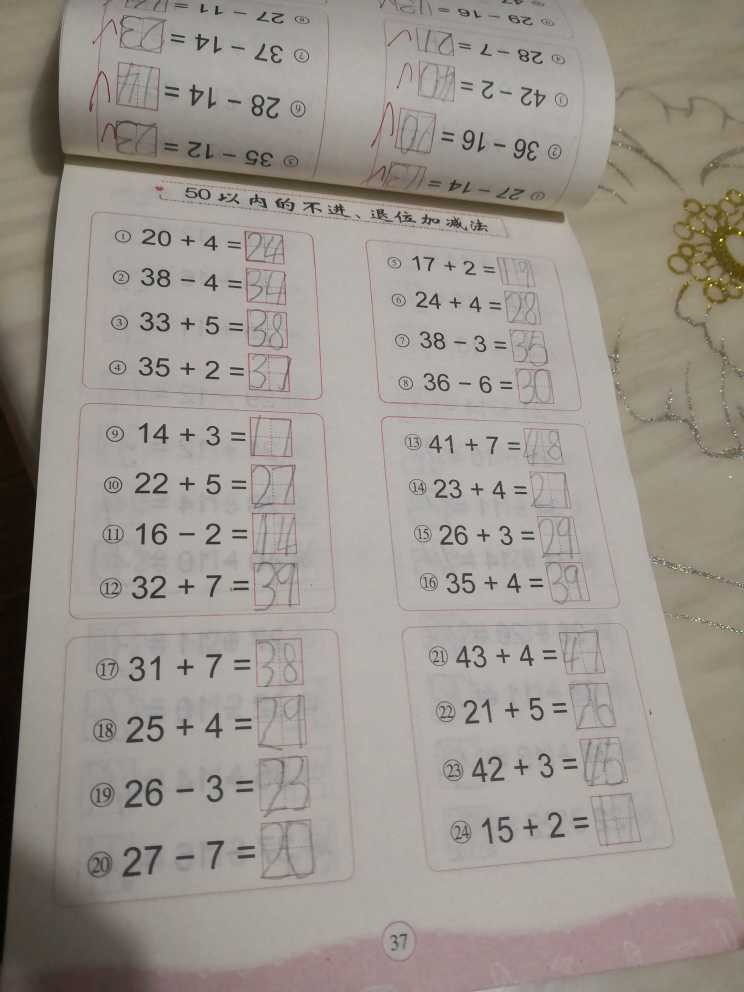 50以内的不进、退位加减法
① 20 + 4 = 24
② 38 − 4 = 34
③ 33 + 5 = 38
④ 35 + 2 = 37
⑤ 17 + 2 = 19
⑥ 24 + 4 = 28
⑦ 38 − 3 = 35
⑧ 36 − 6 = 30
⑨ 14 + 3 = 17
⑩ 22 + 5 = 27
⑪ 16 − 2 = 14
⑫ 32 + 7 = 39
⑬ 41 + 7 = 48
⑭ 23 + 4 = 27
⑮ 26 + 3 = 29
⑯ 35 + 4 = 39
⑰ 31 + 7 = 38
⑱ 25 + 4 = 29
⑲ 26 − 3 = 23
⑳ 27 − 7 = 20
㉑ 43 + 4 = 47
㉒ 21 + 5 = 26
㉓ 42 + 3 = 45
㉔ 15 + 2 =
37
① 27 − 14 = 13
② 36 − 16 = 20
③ 42 − 2 = 40
④ 28 − 7 = 21
⑤ 35 − 12 = 23
⑥ 28 − 14 = 14
⑦ 37 − 14 = 23
⑧ 27 − 11 =
29 − 16 =